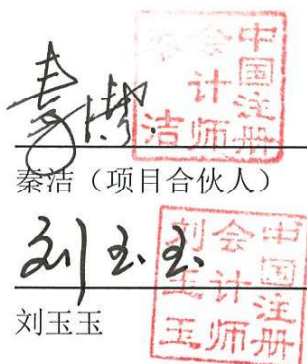 秦洁
中国注册
会计师
秦洁
秦洁（项目合伙人）
刘玉玉
中国注册
会计师
刘玉玉
刘玉玉